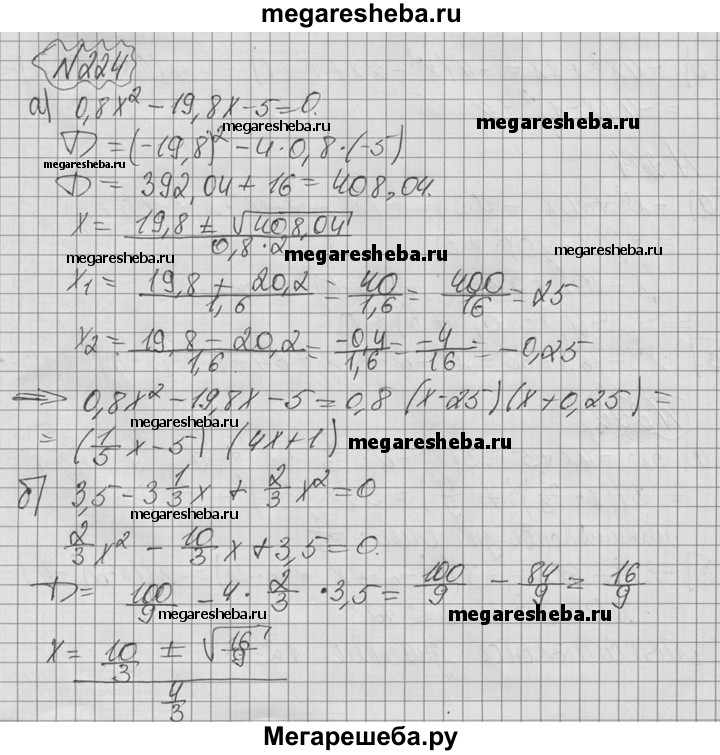 megaresheba.ru
№224
а) 0,8x² - 19,8x - 5 = 0.
D = (-19,8)² - 4·0,8·(-5)
megaresheba.ru
megaresheba.ru
megaresheba.ru
D = 392,04 + 16 = 408,04.
x = (19,8 ± √408,04) / (0,8·2)
megaresheba.ru
megaresheba.ru
megaresheba.ru
x₁ = (19,8 + 20,2) / 1,6 = 40/1,6 = 400/16 = 25
x₂ = (19,8 - 20,2) / 1,6 = -0,4/1,6 = -4/16 = -0,25
⇒ 0,8x² - 19,8x - 5 = 0,8 (x-25)(x+0,25) =
megaresheba.ru
= (1/5 x - 5) (4x+1)
megaresheba.ru
б) 3,5 - 3 1/3 x + 2/3 x² = 0
megaresheba.ru
2/3 x² - 10/3 x + 3,5 = 0.
D = 100/9 - 4 · 2/3 · 3,5 = 100/9 - 84/9 = 16/9
megaresheba.ru
megaresheba.ru
x = (10/3 ± √16/9) / (4/3)
Мегарешеба.ру